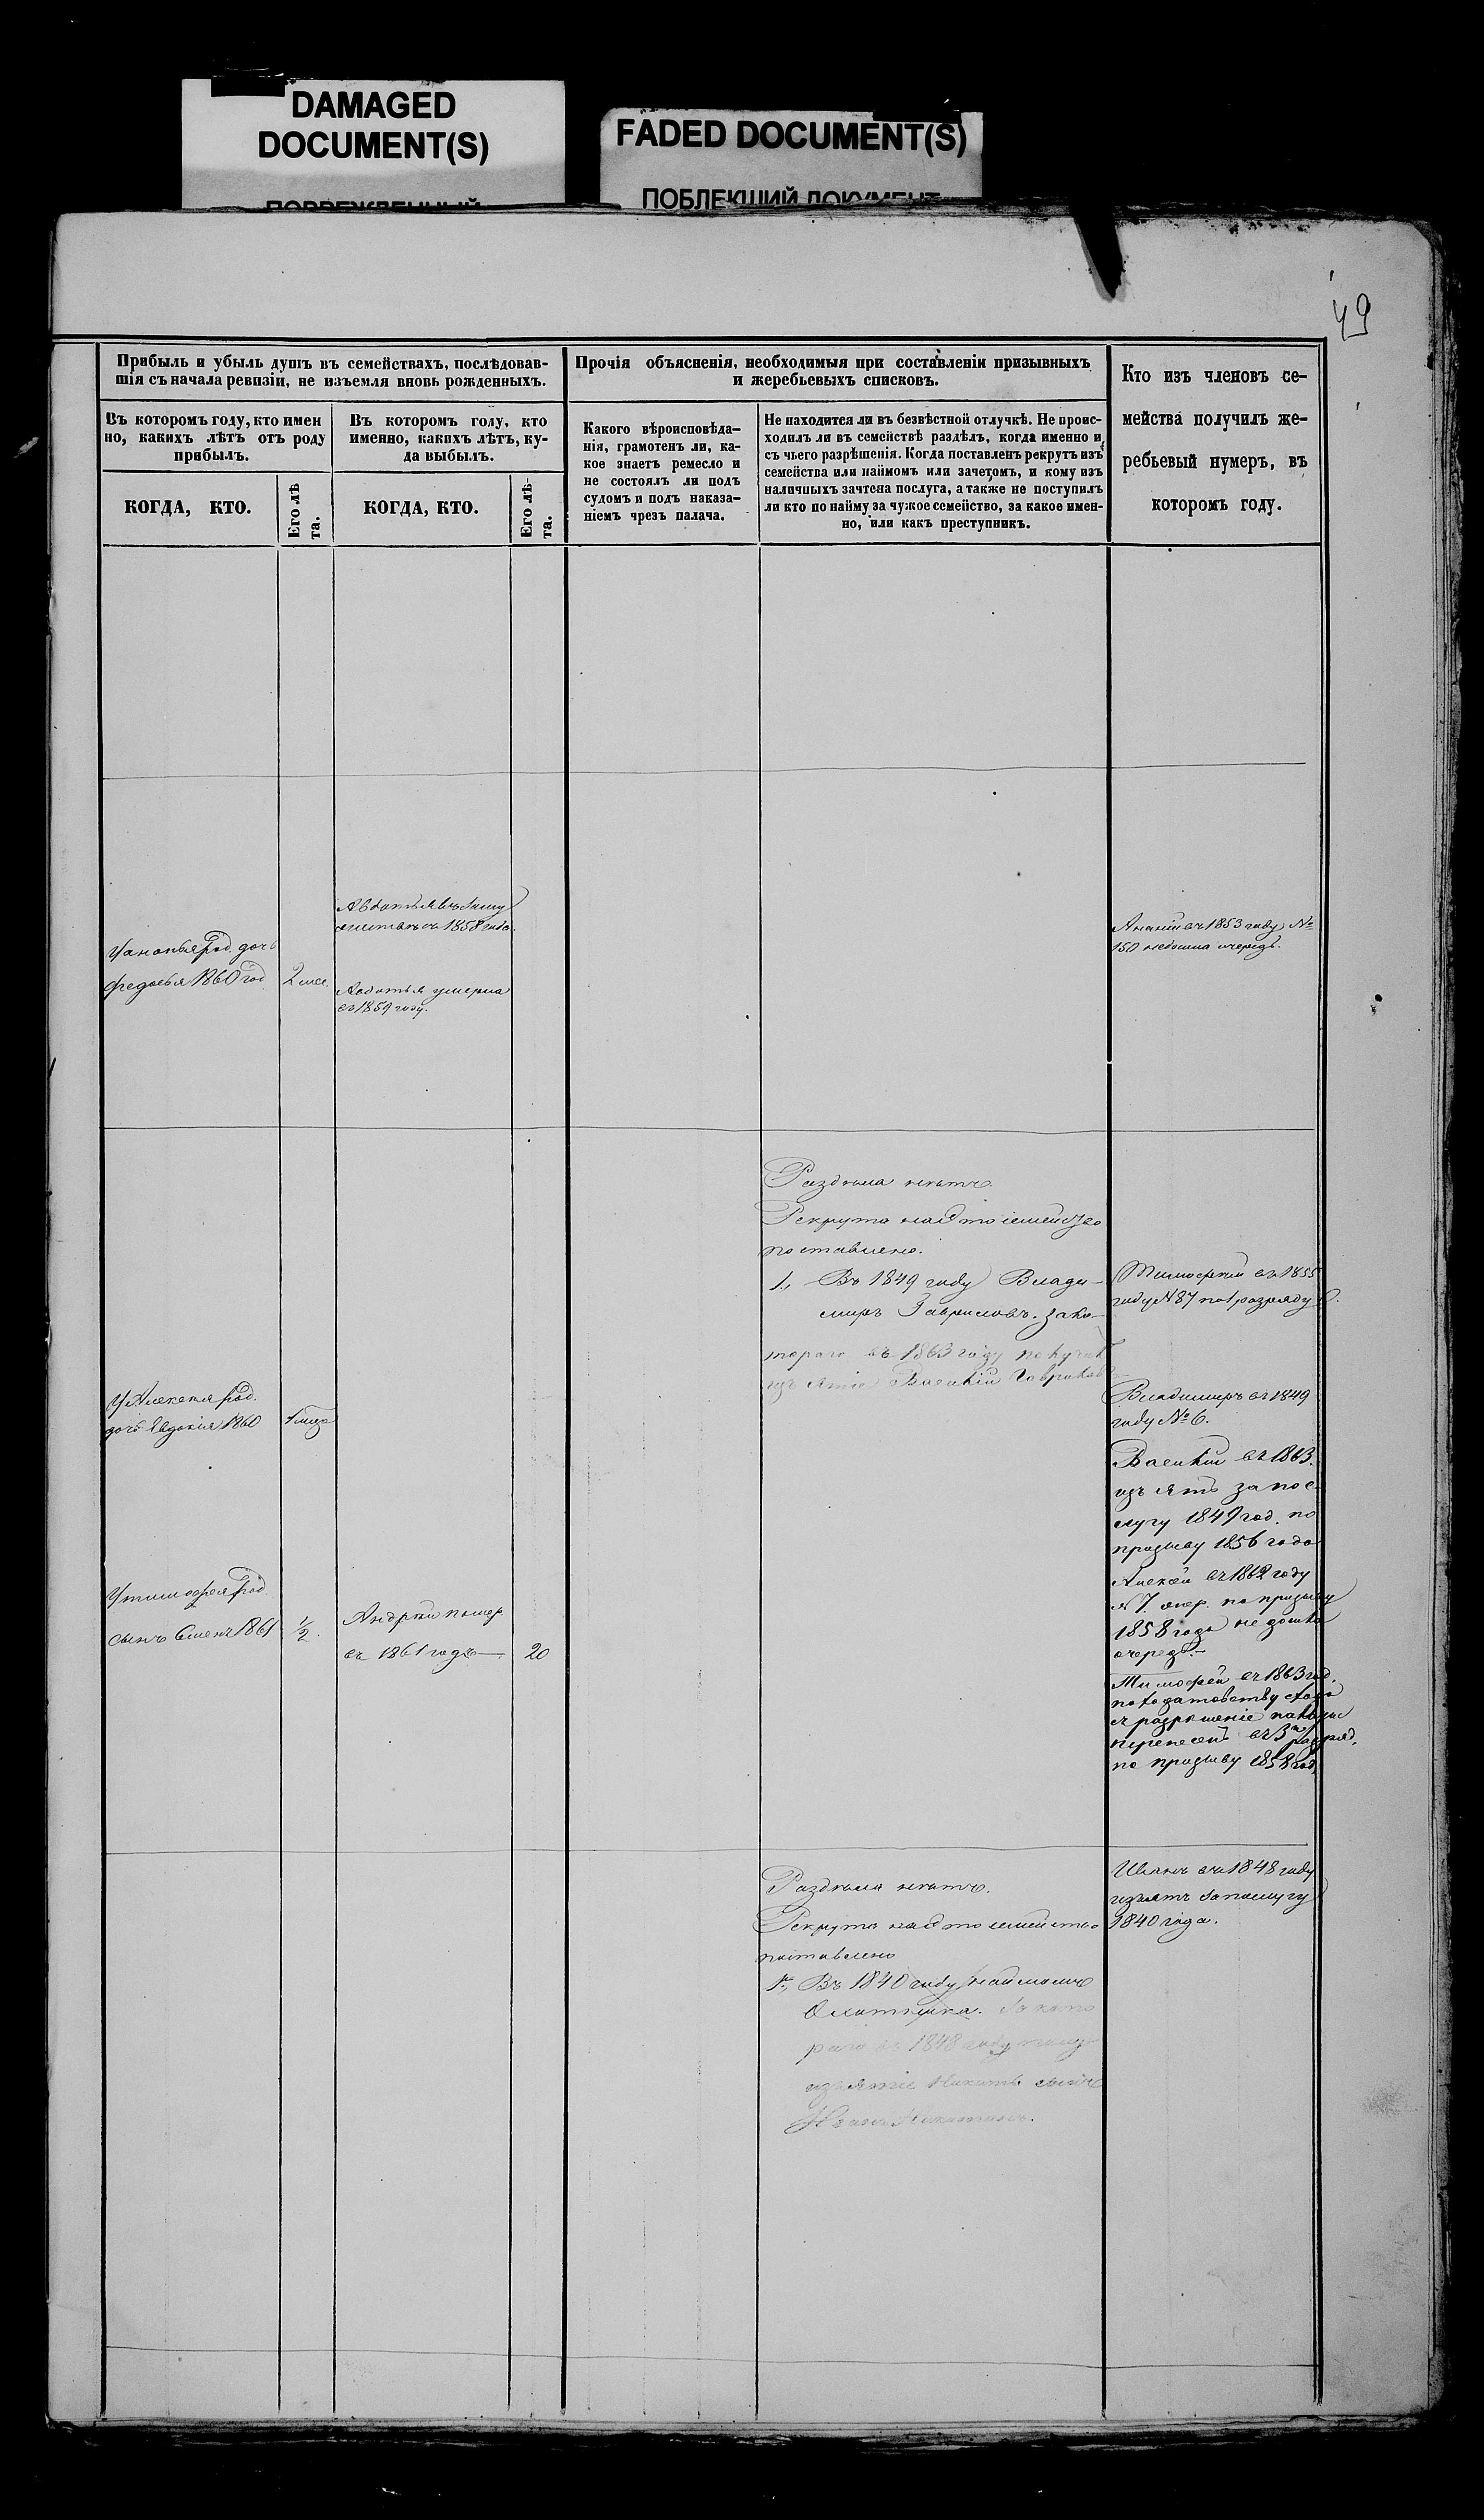 DAMAGED
DOCUMENT(S)
FADED DOCUMENT(S)
ПОВРЕЖДЕННЫЙ
ПОБЛЕКШИЙ ДОКУМЕНТ
49
Прибыль и убыль душъ въ семействахъ, послѣдовав-
шія съ начала ревизіи, не изъемля вновь рожденныхъ.
Въ которомъ году, кто имен
но, какихъ лѣтъ отъ роду
прибылъ.
Въ которомъ году, кто
именно, какихъ лѣтъ, ку-
да выбылъ.
КОГДА, КТО.
Его лѣ
та.
КОГДА, КТО.
Его лѣ-
та.
Прочія объясненія, необходимыя при составленіи призывныхъ
и жеребьевыхъ списковъ.
Какого вѣроисповѣда-
нія, грамотенъ ли, ка-
кое знаетъ ремесло и
не состоялъ ли подъ
судомъ и подъ наказа-
ніемъ чрезъ палача.
Не находится ли въ безвѣстной отлучкѣ. Не проис-
ходилъ ли въ семействѣ раздѣлъ, когда именно и
съ чьего разрѣшенія. Когда поставленъ рекрутъ изъ
семейства или наймомъ или зачетомъ, и кому изъ
наличныхъ зачтена послуга, а также не поступилъ
ли кто по найму за чужое семейство, за какое имен-
но, или какъ преступникъ.
Кто изъ членовъ се-
мейства получилъ же-
ребьевый нумеръ, въ
которомъ году.
Авдотья въ
въ 1858 года.
род. дочь
Федосья 1860 год
2 мес.
Авдотья умерла
въ 1859 году.
Ананій въ 1853 году №
150 недошла очередь.
Раздѣла нѣтъ.
Рекрута на это семейство
поставлено.
1., Въ 1849 году Влади-
миръ Гавриловъ. за ко-
тораго въ 1863 году получ
изъятіе Василій Гаврилов
Тимофей въ 1855
году № 87 по 1 разряду
Владимиръ въ 1849
году № 6.
Василій въ 1863.
изъятъ за пос
лугу 1849 год. по
призыву 1856 года
Алексѣй въ 1862 году
№ 7. по призыву
1858 года не дошла
очередь.—
Тимофей въ 1863 год.
по ходатайству
съ разрѣшеніе палаты
перенесенъ въ 3й разряд.
по призыву 1858 год.
У Алексея род.
дочь Евдокія 1860
У Тимофея род.
сынъ Семенъ 1861
1/2.
Андрей помер
въ 1861 годъ—
20
Раздѣла нѣтъ.
Рекрута на это семейство
поставлено
1., Въ 1840 году наймомъ
Охотника. За кото
раго въ 1848 году
изъятіе Никиты сынъ
Иванъ Никитинъ.
Иванъ въ 1848 году
изъятъ за послугу
1840 года.